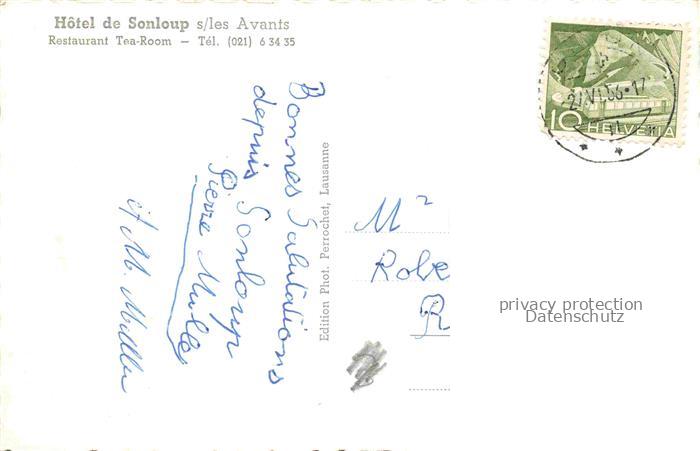 Hôtel de Sonloup s/les Avants
Restaurant Tea-Room – Tél. (021) 6 34 35
Bonnes Salutations
depuis Sonloup
Pierre Muller
et M. Muller
Edition Phot. Perrochet, Lausanne
10 HELVETIA
M
Robe
R
privacy protection
Datenschutz